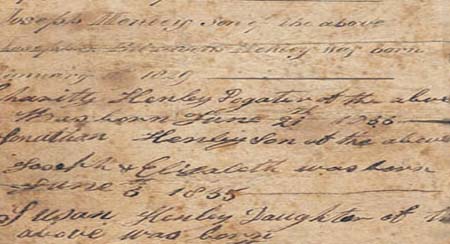 Joseph Henley Son of the above
Joseph & Elizabeth Henley was born
January 1829
Charity Henley Dogater of the above
Was born June 2
Jonathan Henley Son of the above
Joseph & Elizabeth was born
June 6 1835
Susan Henley Daughter of th
above was born